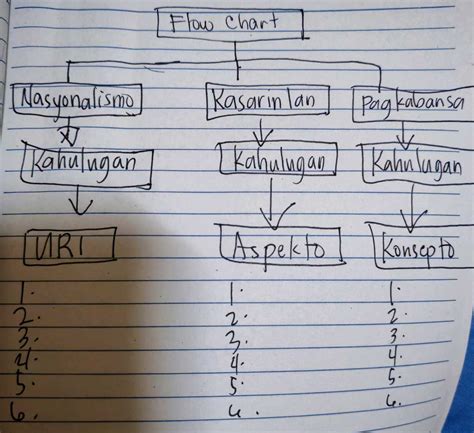 Flow Chart
Nasyonalismo Kasarinlan Pagkabansa
Kahulugan Kahulugan Kahulugan
URI Aspekto Konsepto
1. 1. 1.
2. 2. 2.
3. 3. 3.
4. 4. 4.
5. 5. 5.
6. 6. 6.